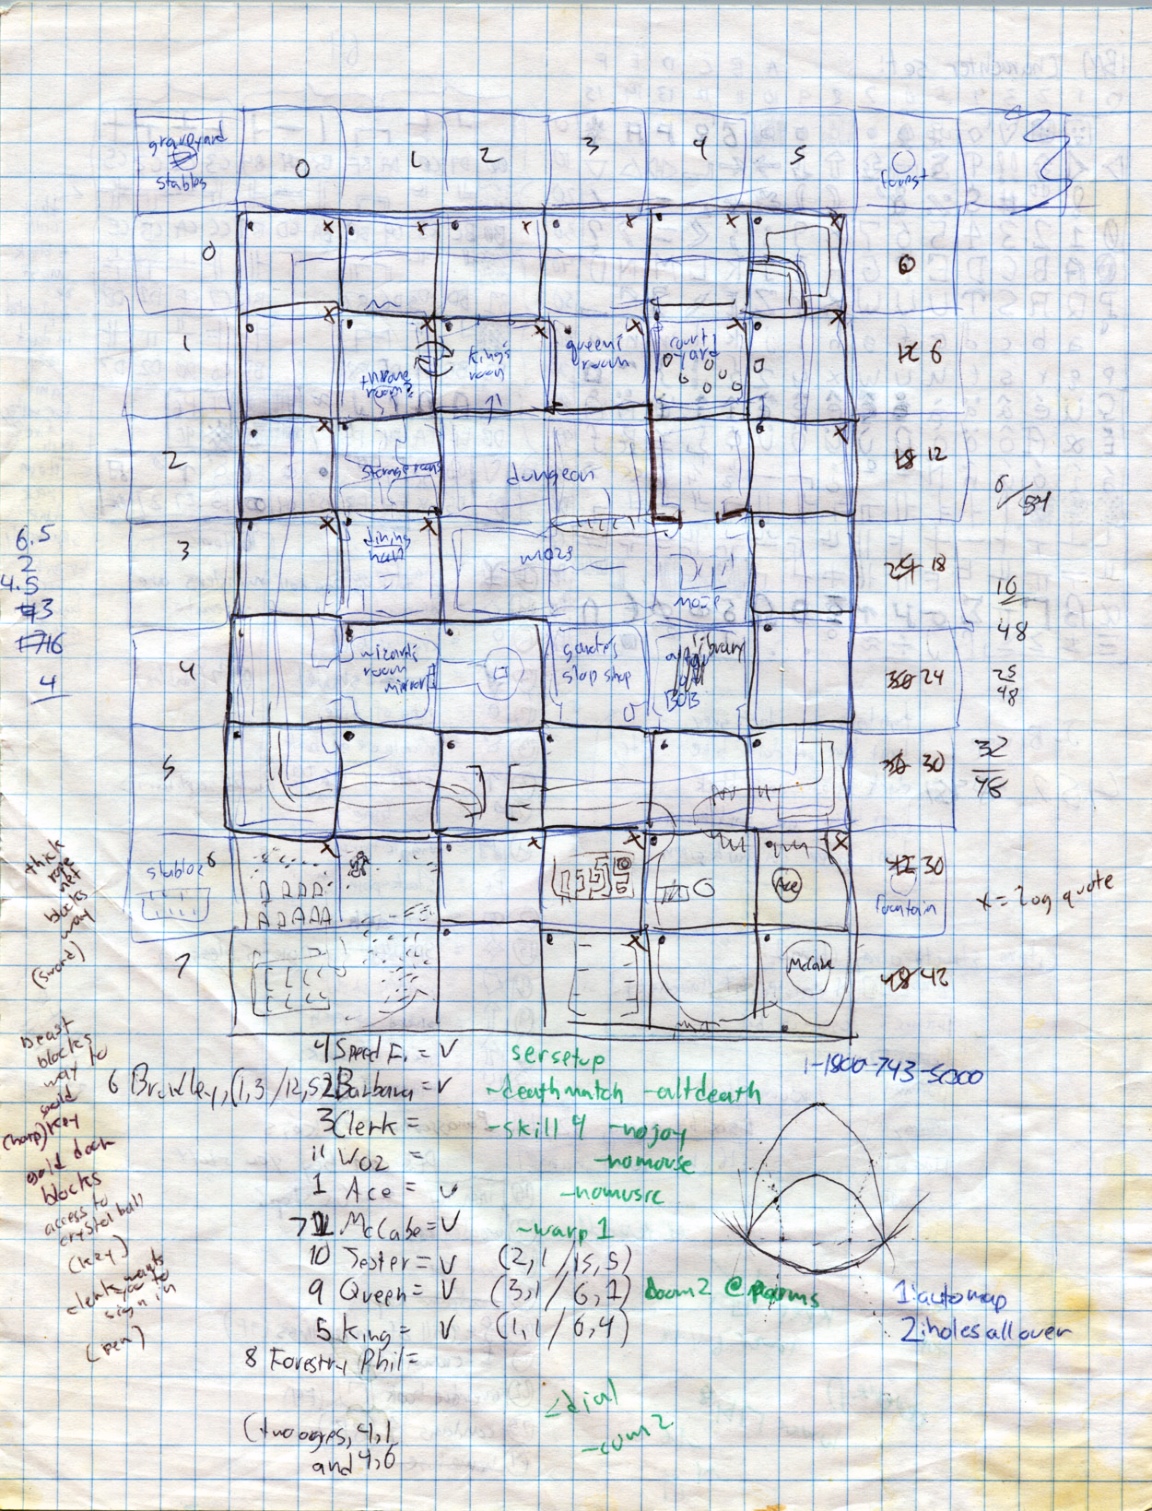 graveyard
stabbs
0 1 2 3 4 5
forest
0
0
1
throne room
king's room
queen's room
court yard
12 6
2
storage room
dungeon
18 12
6/54
3
dining room
24 18
6.5
2
4.5
16
48
4
wizard's room mirror
slop shop
library
BOB
30 24
25
48
4
5
36 30
32
48
stables
6
Ace
30
fountain
x = log quote
thick
rope
net
blocks
way
(sword)
7
McCabe
48 42
Beast
blocks
way to
gold
(harp) key
gold door
blocks
access to
crystal ball
(key)
clerk wants
you to
sign in
(pen)
4 Speed E. = V
6 Brinkley, (1,3 / 12,5) 2 Barbara = V
3 Clerk =
11 Woz =
1 Ace = v
7 McCabe = V
10 Jester = V (2,1 / 15,5)
9 Queen = V (3,1 / 6,2)
5 King = V (1,1 / 6,4)
8 Forestry Phil =
(two ogres, 4,1
and 4,6
sersetup
-deathmatch -altdeath
-skill 4 -nojoy
-nomouse
-nomusic
-warp 1
doom2 @parms
-dial
-com2
1-1800-743-5000
1: automap
2: holes all over